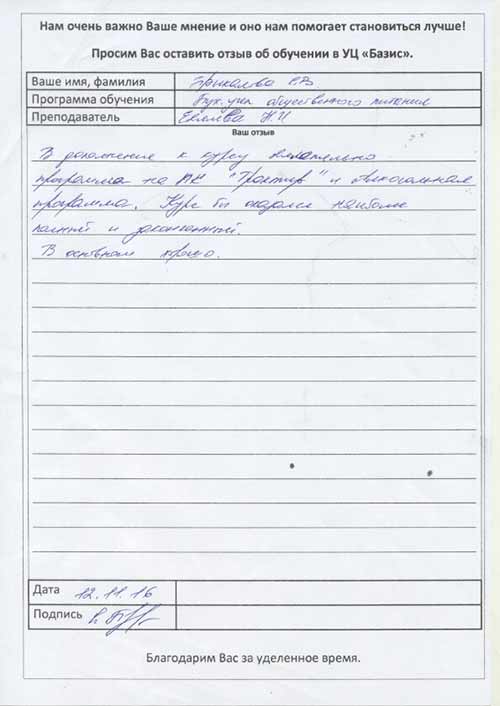 Нам очень важно Ваше мнение и оно нам помогает становиться лучше!
Просим Вас оставить отзыв об обучении в УЦ «Базис».
Ваше имя, фамилия
Программа обучения Бух. учет общественного питания
Преподаватель Н.И
Ваш отзыв
В дополнение к курсу желательно
программа на ПК "Трактир" и
программа. Курс бы оказался наиболее
полный и законченный.
В основном хорошо.
Дата 12.11.16
Подпись
Благодарим Вас за уделенное время.